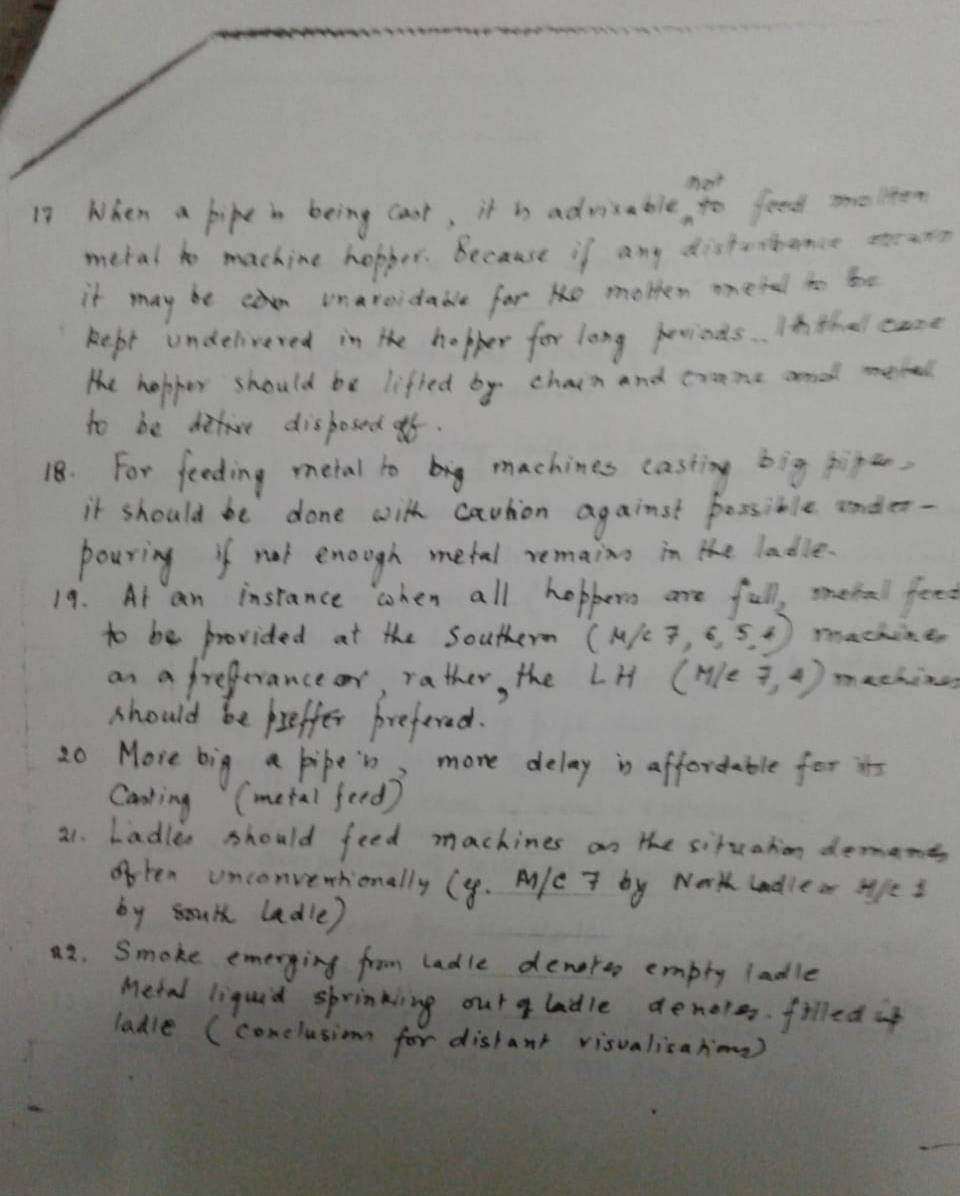 not
17 When a pipe is being cast, it is advisable to feed molten
metal to machine hopper. Because if any disturbance occurs
it may be unavoidable for the molten metal to be
kept undelivered in the hopper for long periods.. In that case
the hopper should be lifted by chain and crane and metal
to be disposed off.
18. For feeding metal to big machines casting big pipes,
it should be done with caution against possible under-
pouring if not enough metal remains in the ladle.
19. At an instance when all hoppers are full, metal feed
to be provided at the Southern (M/c 7, 6, 5, 4) machines
as a preferance or, rather, the LH (M/c 7, 4) machines
should be preffer prefered.
20 More big a pipe is, more delay is affordable for its
Casting (metal feed)
21. Ladles should feed machines as the situation demands
often unconventionally (eg. M/C 7 by North ladle or M/c 1
by South ladle)
22. Smoke emerging from ladle denotes empty ladle
Metal liquid sprinkling out of ladle denotes filled
ladle (conclusions for distant visualisations)